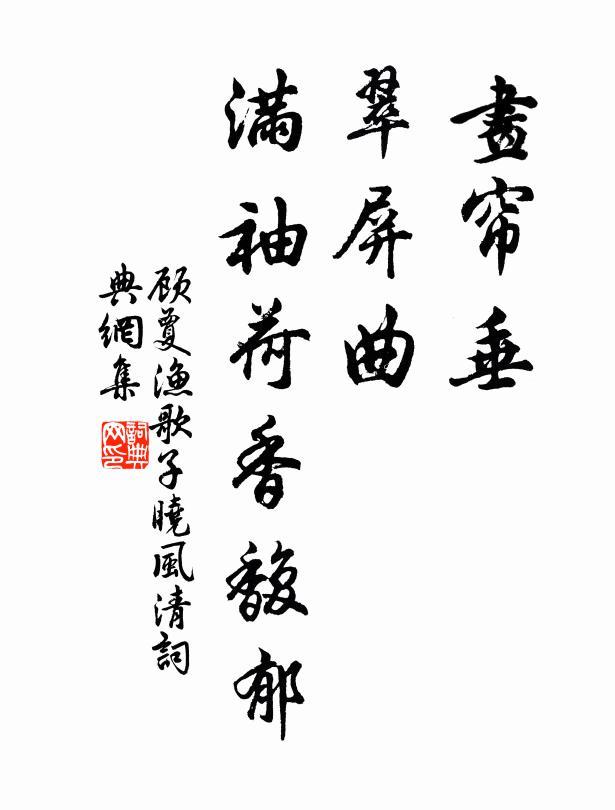 畫帘垂
翠屏曲
滿袖荷香馥郁
顾夐漁歌子曉風清詞
典網集
詞典
网印